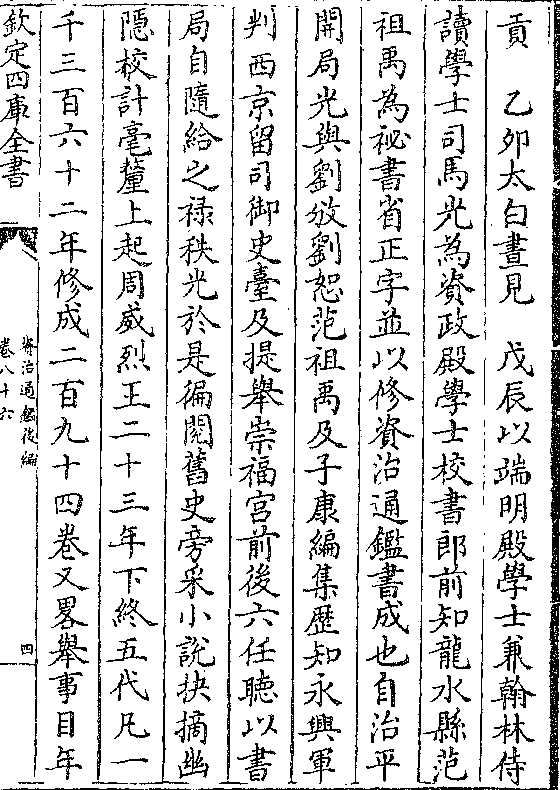 貢　乙卯太白晝見　戊辰以端明殿學士兼翰林侍
讀學士司馬光為資政殿學士校書郎前知龍水縣范
祖禹為祕書省正字並以修資治通鑑書成也自治平
開局光與劉攽劉恕范祖禹及子康編集歷知永興軍
判西京留司御史臺及提舉崇福宮前後六任聽以書
局自隨給之祿秩光於是徧閱舊史旁采小說抉摘幽
隱校計毫釐上起周威烈王二十三年下終五代凡一
千三百六十二年修成二百九十四卷又畧舉事目年
欽定四庫全書
資治通鑑後編
卷八十六
四